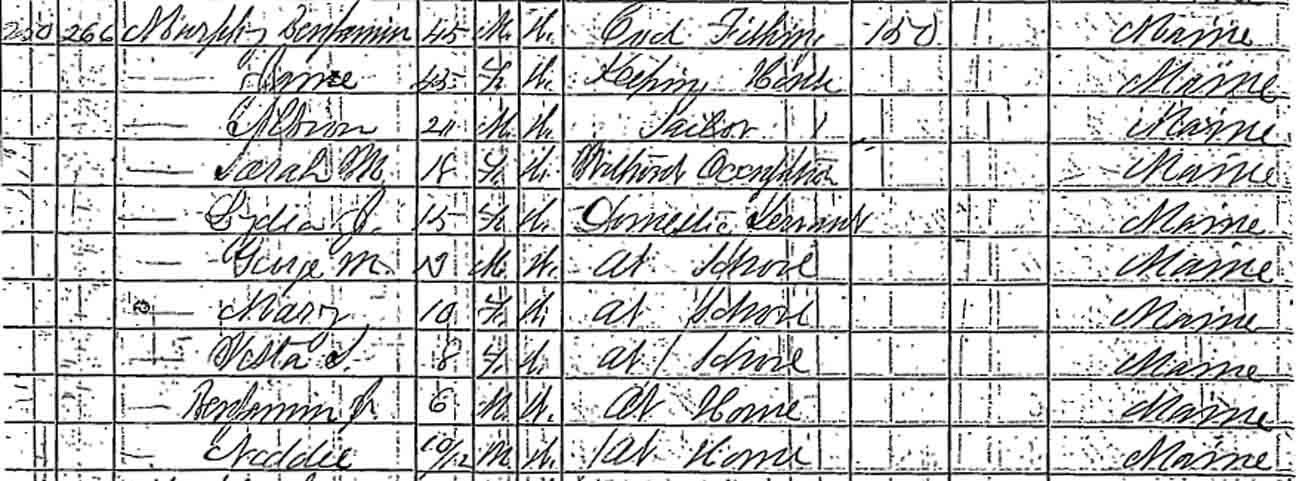 250 266 Murphy Benjamin 45 M. W. Cod Fishing 150 Maine
— Jane 45 F. W. Keeping House Maine
— Albion 20 M. W. Sailor Maine
— Sarah M. 18 F. W. Without Occupation Maine
— Lydia J. 15 F. W. Domestic Servant Maine
— George M. M. W. at School Maine
— Mary 10 F. W. at School Maine
— Vesta S. 8 F. W. at School Maine
— Benjamin Jr. 6 M. W. at Home Maine
— Freddie 10/12 M. W. at Home Maine